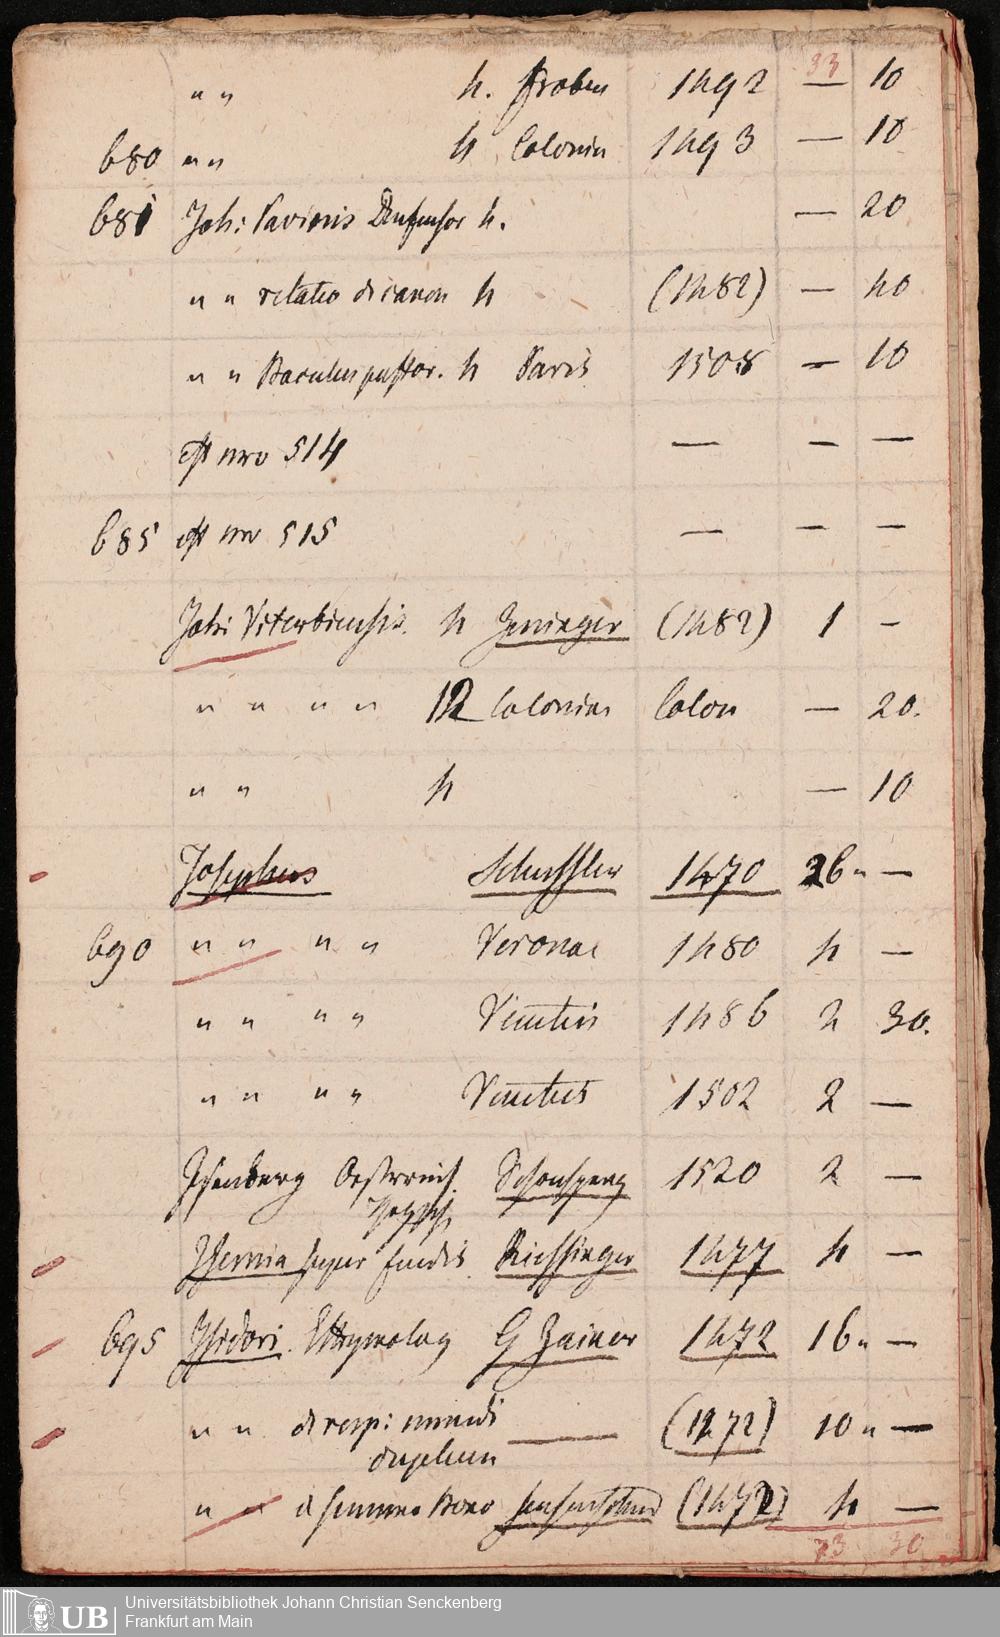 33
" " 4. Froben 1492 — 10
680 " " 4 Coloniae 1493 — 10
681 Joh: Parisiis 4. — 20
" " relatio de canon 4 (1482) — 40
" " Baculus pastor. 4 Paris 1508 — 10
est nro 514 — — —
685 est nro 515 — — —
Joh: Viterbiensis. 4 Zeninger (1482) 1 —
" " " " 12 Coloniae Colon — 20.
" " 4 — 10
Josephus Schussler 1470 26 " —
690 " " " " Veronae 1480 4 —
" " " " Venetiis 1486 2 30.
" " " " Venetiis 1502 2 —
Isenberg Oestreich Schonsperg 1520 2 —
Isernia super feudis Riessinger 1477 4 —
695 Isidori Ethymolog G Zainer 1472 16 " —
" " de resp: mundi — (1472) 10 " —
duplum
" " de summo bono (1472) 4 —
73 30
Universitätsbibliothek Johann Christian Senckenberg
Frankfurt am Main
UB